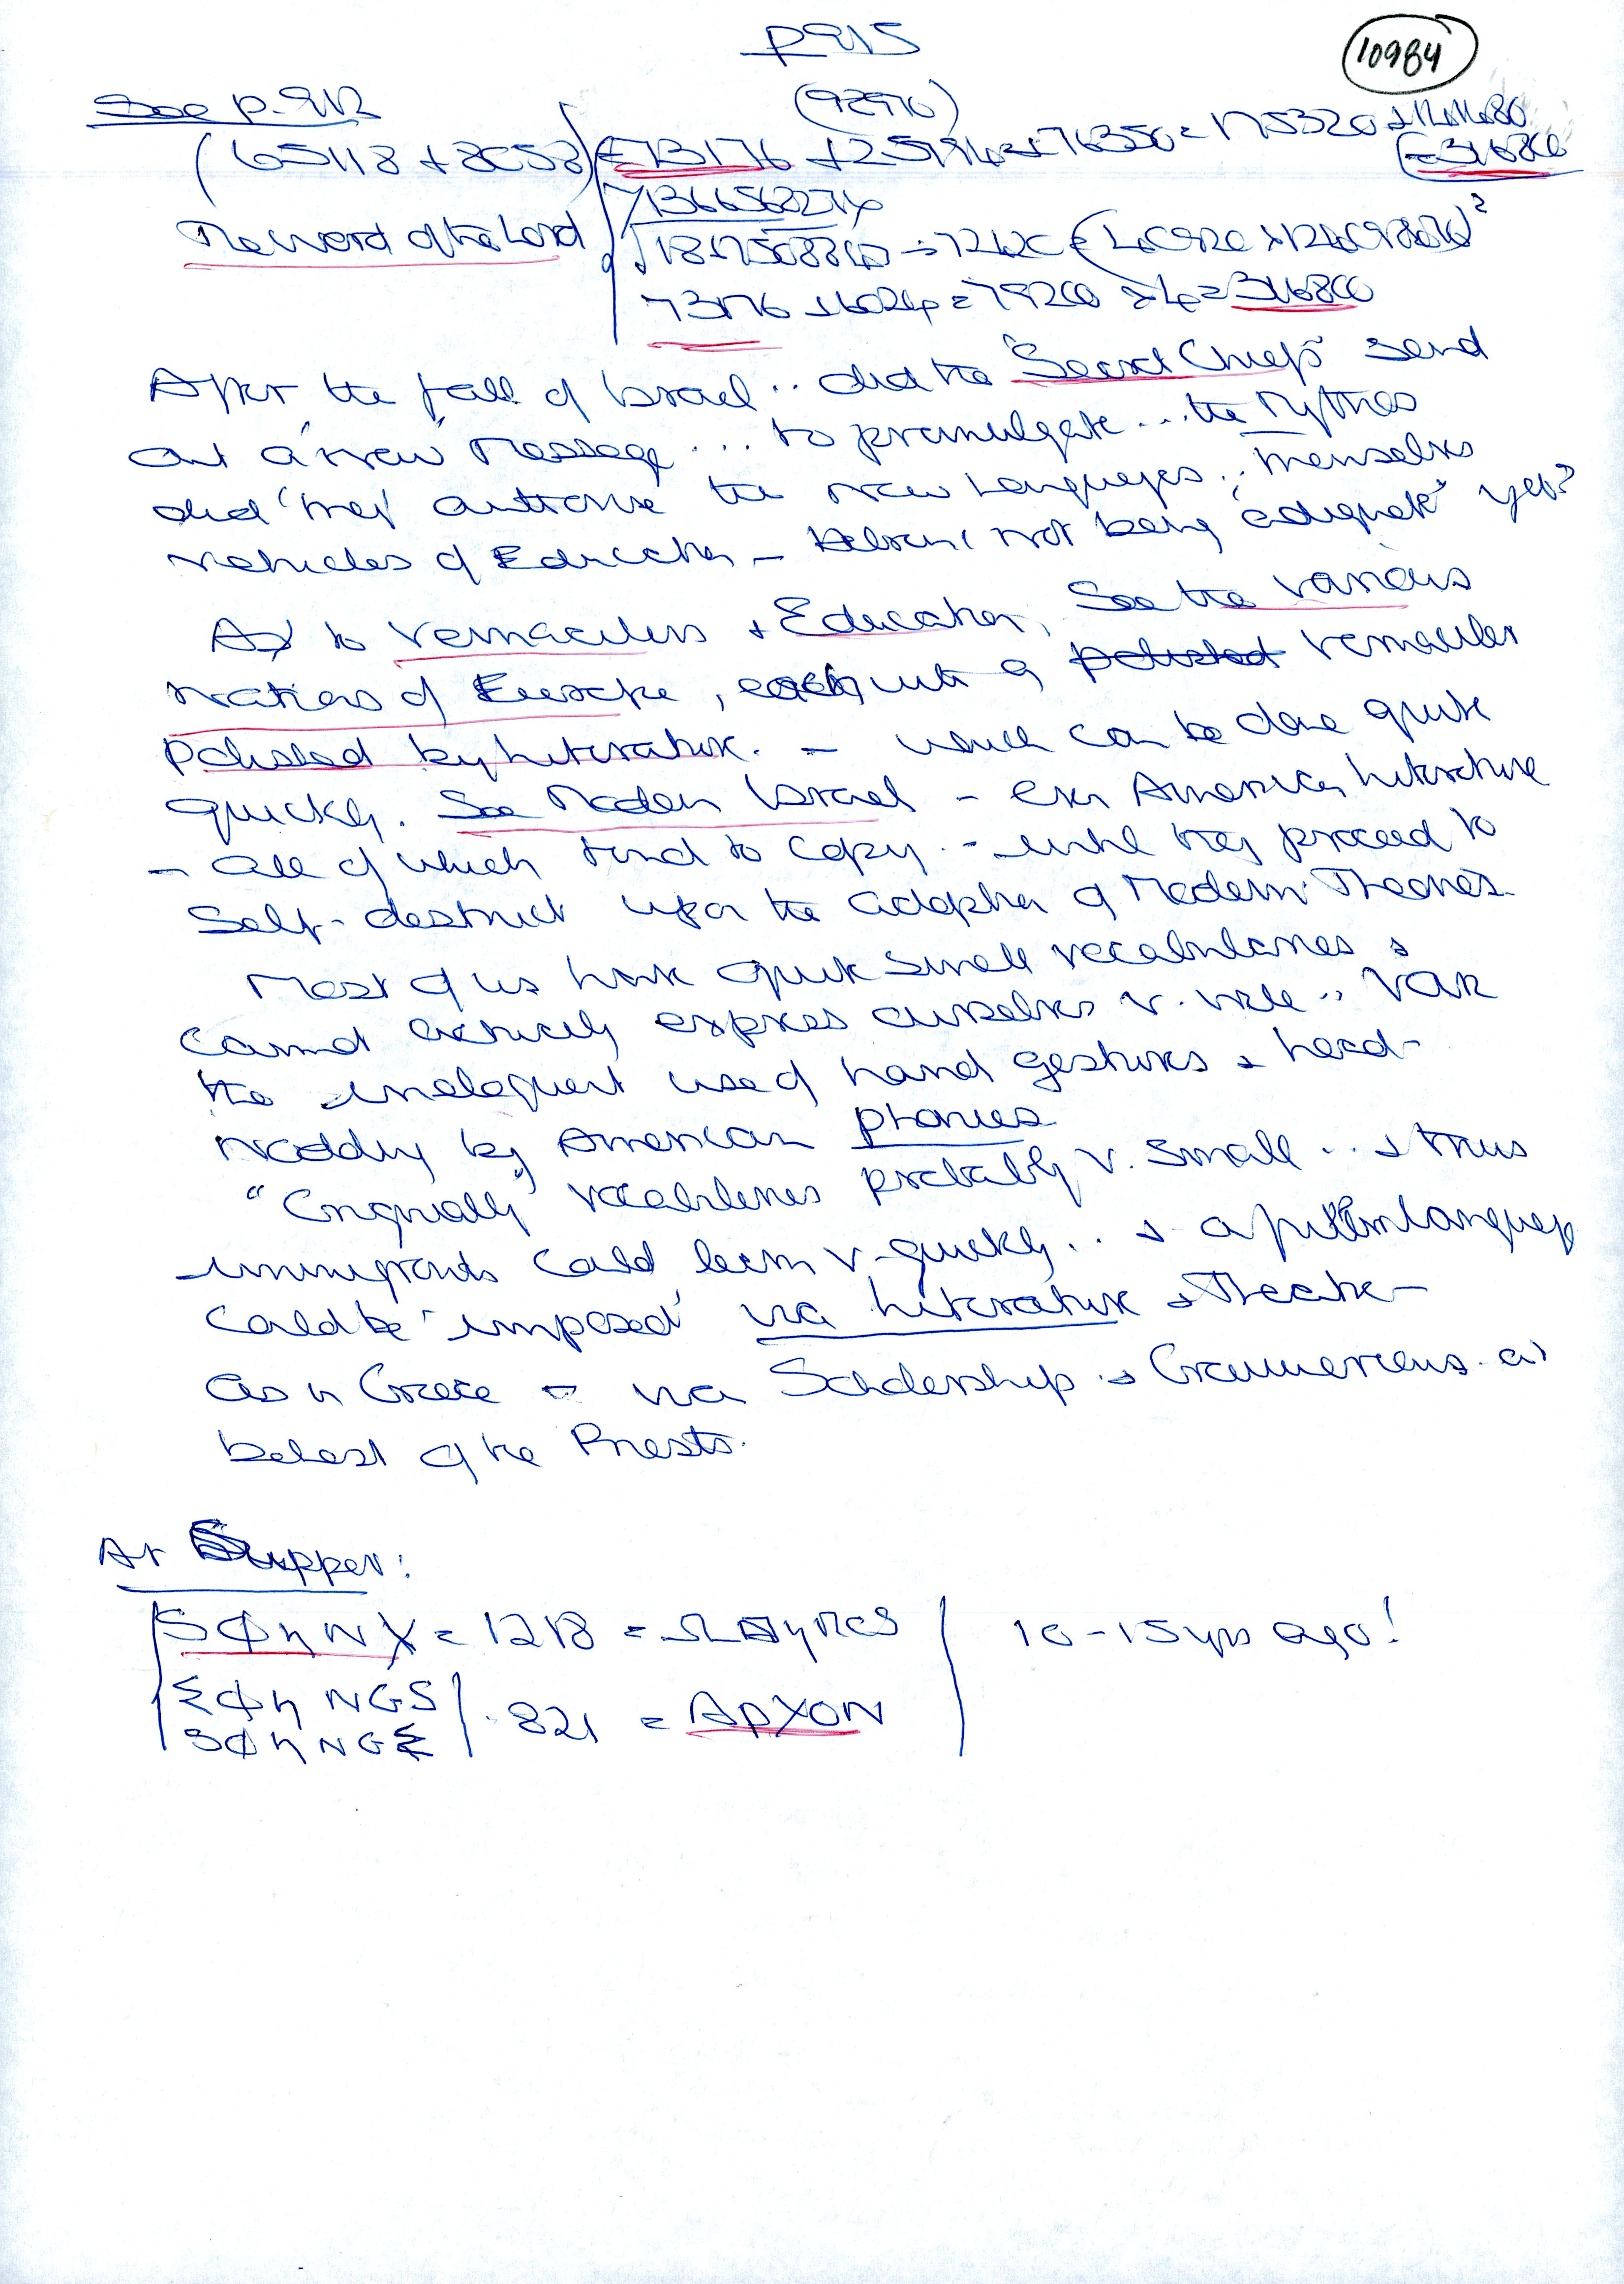 p 915
10984
See p. 912
(92990)
(65118 + 8058) = 73176 + 25194 + 76350 = 175320 + 141480
(=316800
The word of the Lord
73176 + 6024 = 79200 × 4 = 316800
After the fall of Israel .. did the "Secret Chiefs" send
out a 'new' Message ... to promulgate ... the Mythos
did 'they' authorise the new Languages .. themselves
vehicles of Education – not being "adequate" yet?
As to Vernaculars + Education, See the various
Nations of Europe, each with a polished vernacular
Polished by Literature. – which can be done quite
quickly. See Modern Israel – even American Literature
– all of which tend to copy. – until they proceed to
Self-destruct upon the adoption of Modern Theories.
Most of us have quite small vocabularies &
cannot actually express ourselves v. well ..
the ineloquent use of hand gestures & head-
nodding by American phonies
"Originally" vocabularies probably v. small .. & thus
immigrants could learn v. quickly .. & a language
could be 'imposed' via Literature & Theatre –
as in Greece – via Scholarship & Grammarians at
behest of the Priests.
At Supper:
SΦηNX = 1218 =
10-15 yrs ago!
ΣΦη NGS
SΦη NGΣ
821 = APXON